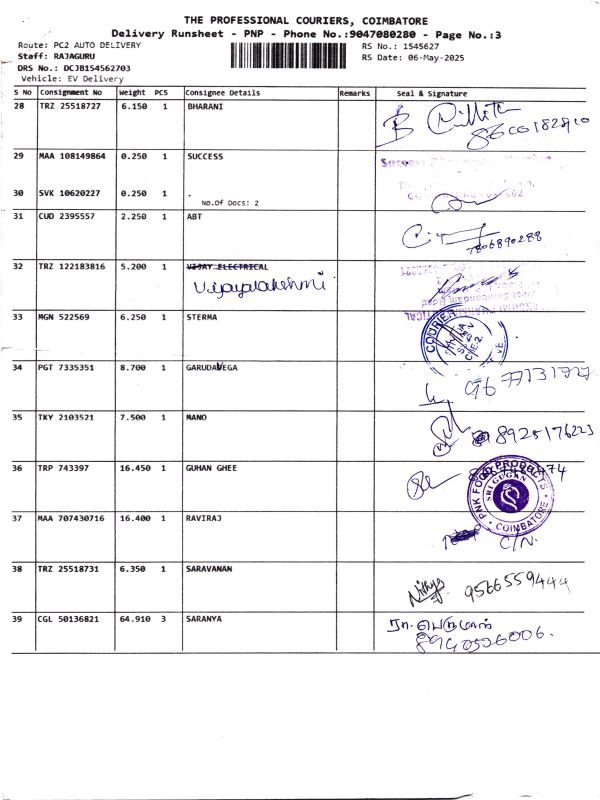 THE PROFESSIONAL COURIERS, COIMBATORE
Delivery Runsheet - PNP - Phone No.:9047080280 - Page No.:3
Route: PC2 AUTO DELIVERY
RS No.: 1545627
Staff: RAJAGURU
RS Date: 06-May-2025
DRS No.: DCJB154562703
Vehicle: EV Delivery
S No Consignment No Weight PCS Consignee Details Remarks Seal & Signature
28 TRZ 25518727 6.150 1 BHARANI
29 MAA 108149864 0.250 1 SUCCESS
30 SVK 10620227 0.250 1 .
No.Of Docs: 2
31 CUD 2395557 2.250 1 ABT
7806890288
32 TRZ 122183816 5.200 1 VIJAY ELECTRICAL
Vijayalakshmi
33 MGN 522569 6.250 1 STERMA
COURIER
34 PGT 7335351 8.700 1 GARUDAVEGA
35 TKY 2103521 7.500 1 MANO
8925176223
36 TRP 743397 16.450 1 GUHAN GHEE
PNK FOOD PRODUCTS
SRI GUGAN
COIMBATORE
37 MAA 707430716 16.400 1 RAVIRAJ
C/N.
38 TRZ 25518731 6.350 1 SARAVANAN
Nithya 9566559444
39 CGL 50136821 64.910 3 SARANYA
ரா. பெருமாள்
8940526006.